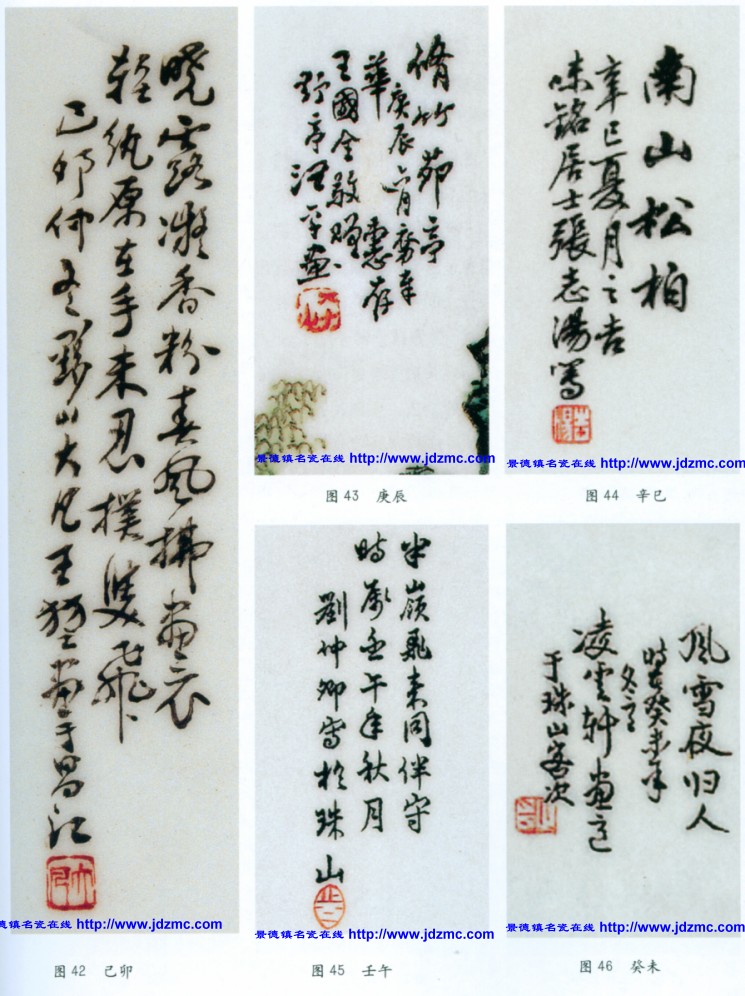 晓露凝香粉春风拂画衣
轻纨原在手未忍扑双飞
己卯仲冬黟山大凡王犊画于昌江
景德镇名瓷在线 http://www.jdzmc.com
图42 己卯
脩竹茆亭
庚辰
華 惠存
王國全敬贈
野亭汪平画
景德镇名瓷在线 http://www.jdzmc.com
图43 庚辰
南山松柏
辛巳夏月之吉
味銘居士張志湯寫
景德镇名瓷在线 http://www.jdzmc.com
图44 辛巳
半嶺飛来同伴守
時属壬午年秋月
劉仲卿寫於珠山
景德镇名瓷在线 http://www.jdzmc.com
图45 壬午
風雪夜归人
時在癸未年
冬立
凌雲軒畫意
于珠山客次
景德镇名瓷在线 http://www.jdzmc.com
图46 癸未